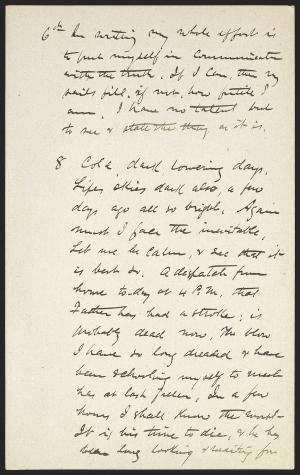 6th In writing my whole effort is
to put myself in communication
with the truth. If I can, then my
sails fill, if not, how futile I
am. I have no talent but
to see & state the thing as it is.
8 Cold, dark, lowering days,
Lifes skies dark also, a few
days ago all so bright. Again
must I face the inevitable,
Let me be calm, & see that it
is best so. A despatch from
home to-day at 4 P.M. that
Father has had a stroke; is
probably dead now, The blow
I have so long dreaded & have
been schooling myself to meet
has at last fallen, In a few
hours I shall know the worst
It is his time to die, & he has
been long looking & waiting for